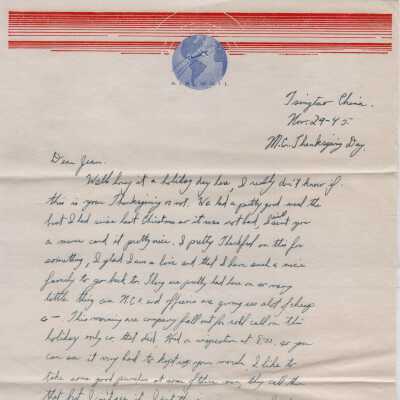 AIR MAIL
Tsingtao China.
Nov. 29-45
M.C. Thanksgiving Day.
Dear Jean.
Well hony it a holiday hey here, I really don't know if
this is your Thanksgiving or not. We had a pretty good meal the
best I had since last Christmas or it was not bad, I sent you
a menu card it pretty nice. I pretty Thankful on this for
something, I glad I am a live and that I have such a nice
family to go back to. They are pretty bad here on so many
little they can N.C.O and officers are giving us alot of cheap
This morning are company fall out for roll call on this
holiday only co that did. Had a inspection at 8:00, so you
can see it very hard to kept up your morale, I like to
take some good punches at some of these men, they call the